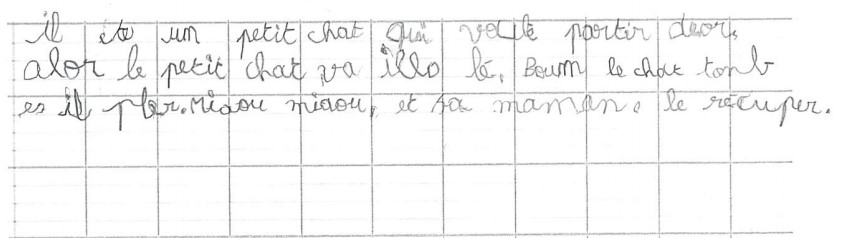 il éte un petit chat qui voule partir deor,
alor le petit chat va illo lé, Boum le chat tonb
es il pler. Miaou miaou, et sa maman. le récuper.